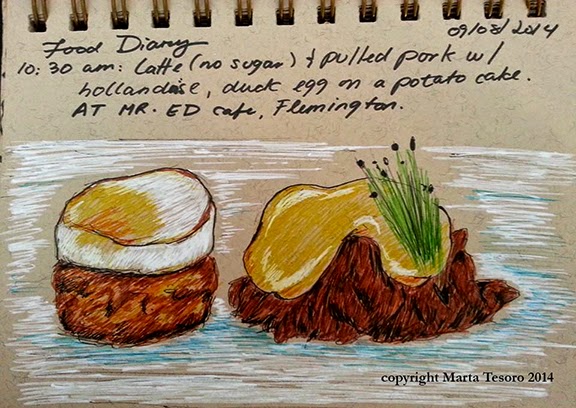 09/08/2014
Food Diary
10:30 am: Latte (no sugar) & pulled pork w/
hollandaise, duck egg on a potato cake.
AT MR. ED cafe, Flemington.
copyright Marta Tesoro 2014